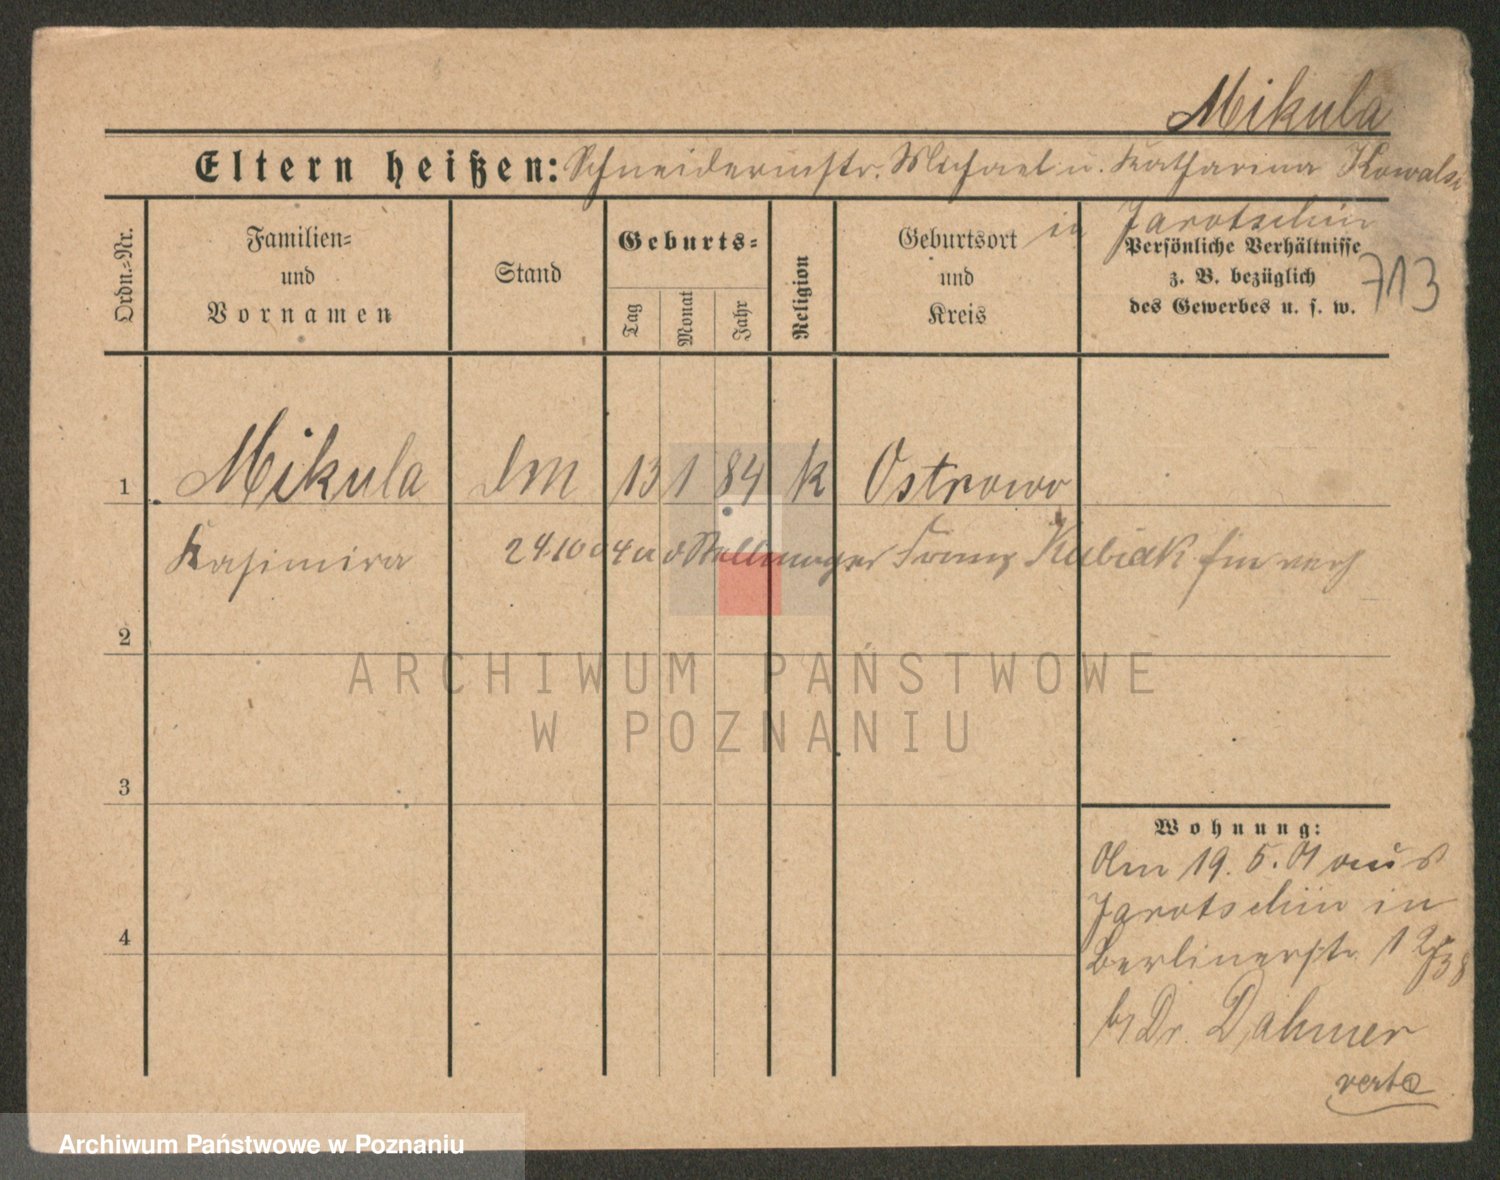 Mikula
Eltern heißen: Schneidermstr. Michael u. Katharina Kowalski
in Jarotschin
Ordn.=Nr.
Familien= und Vornamen
Stand
Geburts=
Tag
Monat
Jahr
Religion
Geburtsort und Kreis
Persönliche Verhältnisse
z. B. bezüglich
des Gewerbes u. s. w.
713
1 Mikula Dm 13 1 84 k Ostrowo
Kasimira 24.10 04 a d Stellmacher Franz Kubiak verh
2
3
4
Wohnung:
Am 19. 5. 01 aus
Jarotschin in
Berlinerstr. 1
b/ Dr. Dahmer
verte
ARCHIWUM PAŃSTWOWE
W POZNANIU
Archiwum Państwowe w Poznaniu